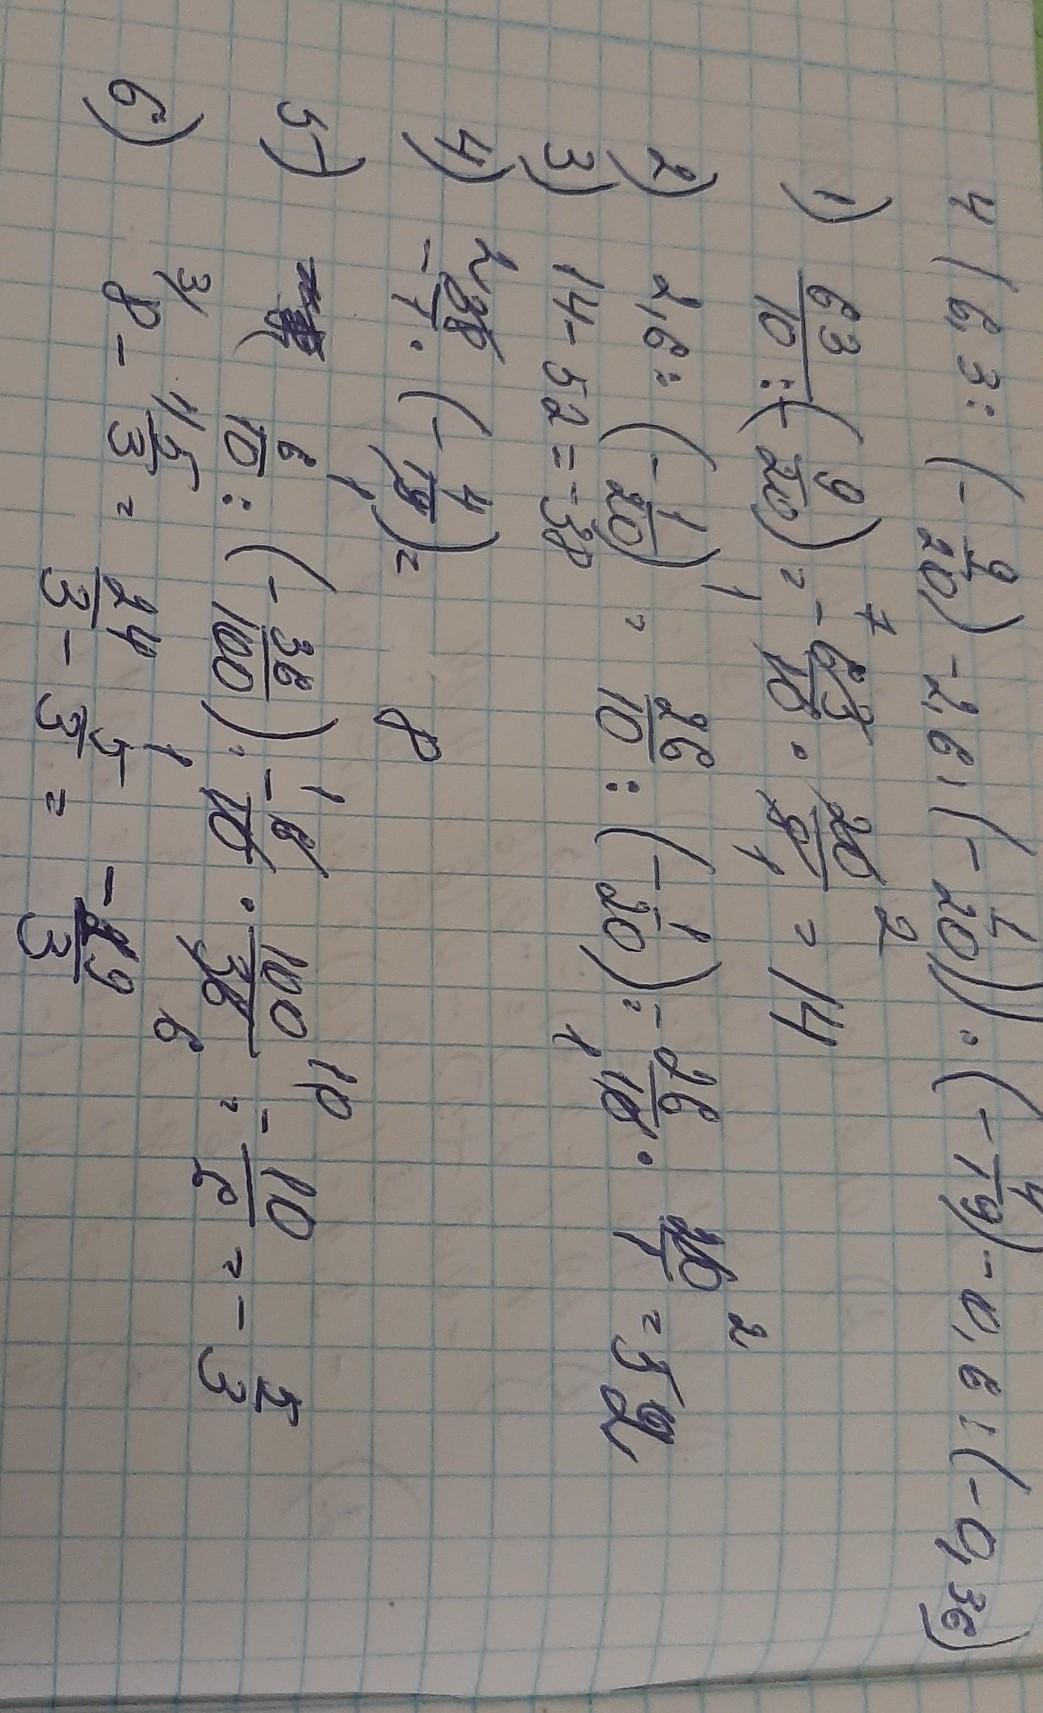 4 (6,3 : (- 9/20) - 2,6 : (- 1/20)) · (- 4/19) - 0,6 : (- 0,36)
1) 63/10 : (- 9/20) = - 63/10 · 20/9 = 14
2) 2,6 : (- 1/20) = 26/10 : (- 1/20) = - 26/10 · 20/1 = 52
3) 14 - 52 = - 38
4) - 38/1 · (- 4/19) = 8
5) 6/10 : (- 36/100) = - 6/10 · 100/36 = - 10/6 = - 5/3
6) 8 - 5/3 = 24/3 - 5/3 = - 19/3